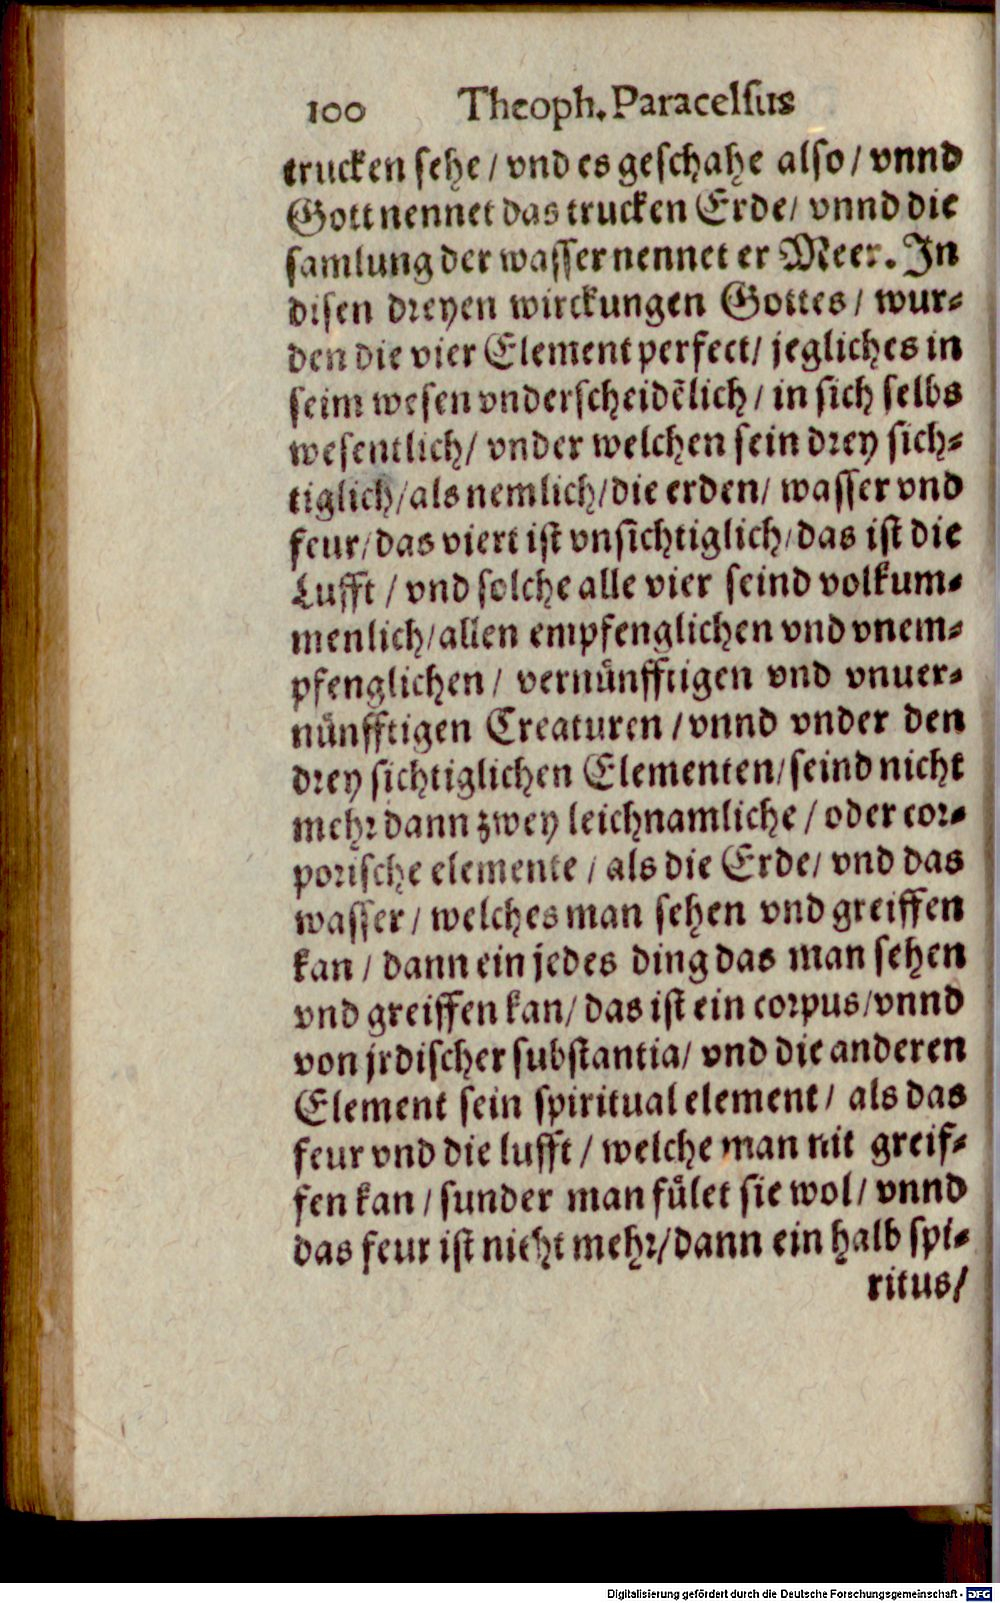 100 Theoph. Paracelsus
trucken sehe / vnd es geschahe also / vnnd
Gott nennet das trucken Erde / vnnd die
samlung der wasser nennet er Meer. In
disen dreyen wirckungen Gottes / wur⸗
den die vier Element perfect / jegliches in
seim wesen vnderscheidẽlich / in sich selbs
wesentlich / vnder welchen sein drey sich⸗
tiglich / als nemlich / die erden / wasser vnd
feur / das viert ist vnsichtiglich / das ist die
Lufft / vnd solche alle vier seind volkum⸗
menlich / allen empfenglichen vnd vnem⸗
pfenglichen / vernuͤnfftigen vnd vnuer⸗
nuͤnfftigen Creaturen / vnnd vnder den
drey sichtiglichen Elementen / seind nicht
mehr dann zwey leichnamliche / oder cor⸗
porische elemente / als die Erde / vnd das
wasser / welches man sehen vnd greiffen
kan / dann ein jedes ding das man sehen
vnd greiffen kan / das ist ein corpus / vnnd
von jrdischer substantia / vnd die anderen
Element sein spiritual element / als das
feur vnd die lufft / welche man nit greif⸗
fen kan / sunder man fuͤlet sie wol / vnnd
das feur ist nicht mehr / dann ein halb spi⸗
ritus /
Digitalisierung gefördert durch die Deutsche Forschungsgemeinschaft - DFG